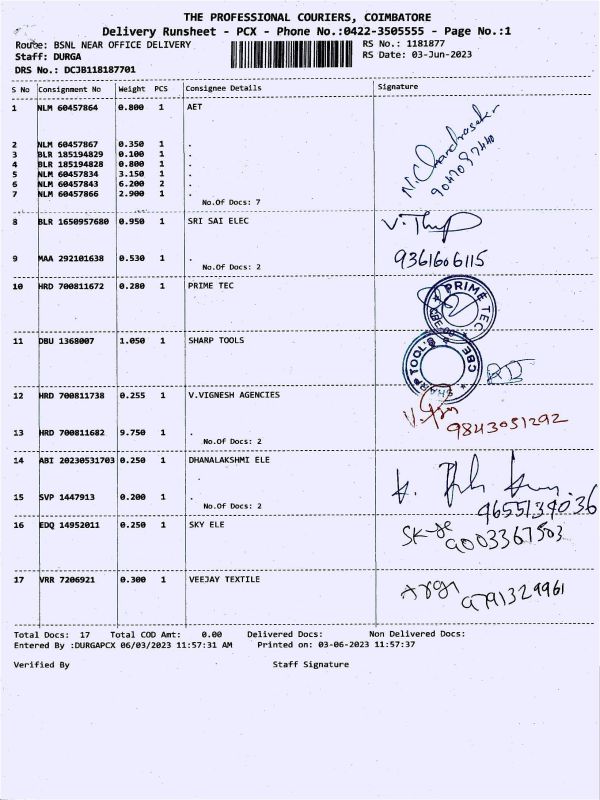 THE PROFESSIONAL COURIERS, COIMBATORE
Delivery Runsheet - PCX - Phone No.:0422-3505555 - Page No.:1
Route: BSNL NEAR OFFICE DELIVERY RS No.: 1181877
Staff: DURGA RS Date: 03-Jun-2023
DRS No.: DCJB118187701
S No Consignment No Weight PCS Consignee Details Signature
1 NLM 60457864 0.800 1 AET
N. Chandrasekar
9047037440
2 NLM 60457867 0.350 1 .
3 BLR 185194829 0.100 1 .
4 BLR 185194828 0.800 1 .
5 NLM 60457834 3.150 1 .
6 NLM 60457843 6.200 2 .
7 NLM 60457866 2.900 1 .
No.Of Docs: 7
8 BLR 1650957680 0.950 1 SRI SAI ELEC
9361606115
9 MAA 292101638 0.530 1 .
No.Of Docs: 2
10 HRD 700811672 0.280 1 PRIME TEC
PRIME TEC CBE
11 DBU 1368007 1.050 1 SHARP TOOLS
SHARP TOOL'S CBE
12 HRD 700811738 0.255 1 V.VIGNESH AGENCIES
9843051292
13 HRD 700811682 9.750 1 .
No.Of Docs: 2
14 ABI 20230531703 0.250 1 DHANALAKSHMI ELE
15 SVP 1447913 0.200 1 .
No.Of Docs: 2
9655134036
16 EDQ 14952011 0.250 1 SKY ELE
9003367503
17 VRR 7206921 0.300 1 VEEJAY TEXTILE
9791329961
Total Docs: 17 Total COD Amt: 0.00 Delivered Docs: Non Delivered Docs:
Entered By :DURGAPCX 06/03/2023 11:57:31 AM Printed on: 03-06-2023 11:57:37
Verified By Staff Signature